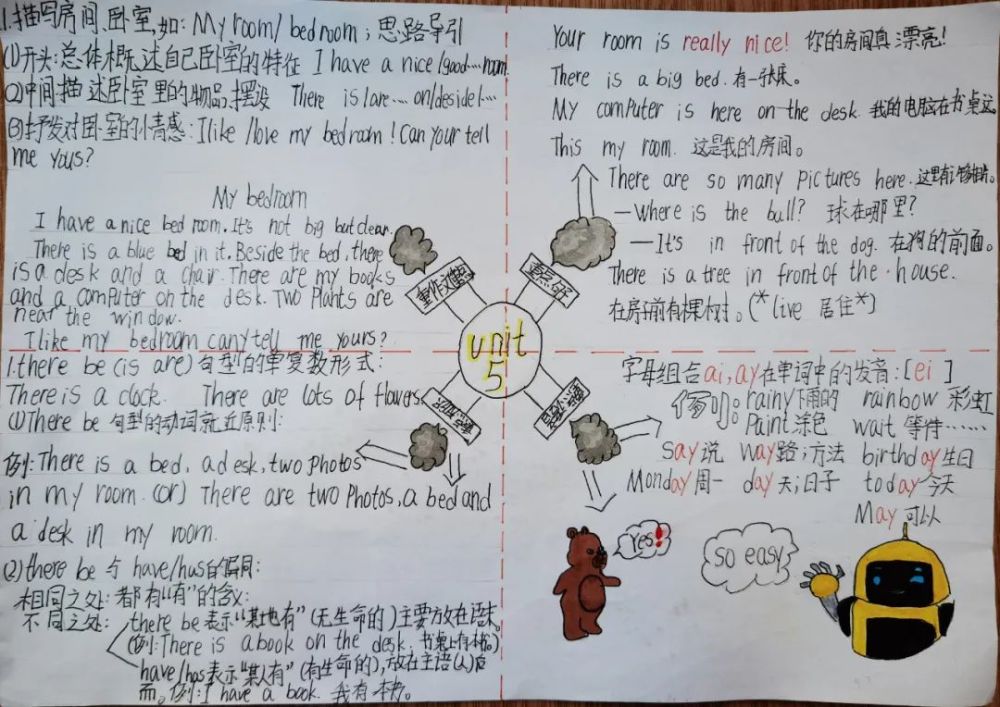 1.描写房间、卧室,如: My room/ bedroom; 思路导引
(1)开头:总体概述自己卧室的特征 I have a nice/good…room.
(2)中间描述卧室里的物品摆设 There is/are… on/deside/…
(3)抒发对卧室的情感: I like /love my bedroom! Can your tell
me yous?
My bedroom
I have a nice bed room. It's not big but clean.
There is a blue bed in it. Beside the bed, there
is a desk and a chair. There are my books
and a computer on the desk. Two Plants are
near the window.
I like my bedroom can y tell me yours?
1.there be (is are) 句型的单复数形式:
There is a clock. There are lots of flowers.
(1)There be 句型的动词就近原则:
例:There is a bed, a desk, two photos
in my room. (or) There are two Photos, a bed and
a desk in my room.
(2)there be 与 have/has的
相同之处:都有“有”的含义:
不同之处: there be 表示“某地有”(无生命的)主要放在
(例:There is a book on the desk.
have/has表示“某人有”(有生命的),放在主语(人)后
面。例:I have a book. 我有一本书。
Your room is really nice! 你的房间真漂亮!
There is a big bed. 有一张床。
My computer is here on the desk. 我的电脑在书桌
This my room. 这是我的房间。
There are so many pictures here.
—Where is the ball? 球在哪里?
—It's in front of the dog. 在狗的前面。
There is a tree in front of the house.
在房子前有棵树。(*live 居住*)
unit
5
字母组合ai,ay在单词中的发音:[ei]
例如: rainy下雨的 rainbow 彩虹
Paint涂色 wait 等待……
say说 way路;方法 birthday生日
Monday周一 day天;日子 today今天
May可以
Yes!
so easy